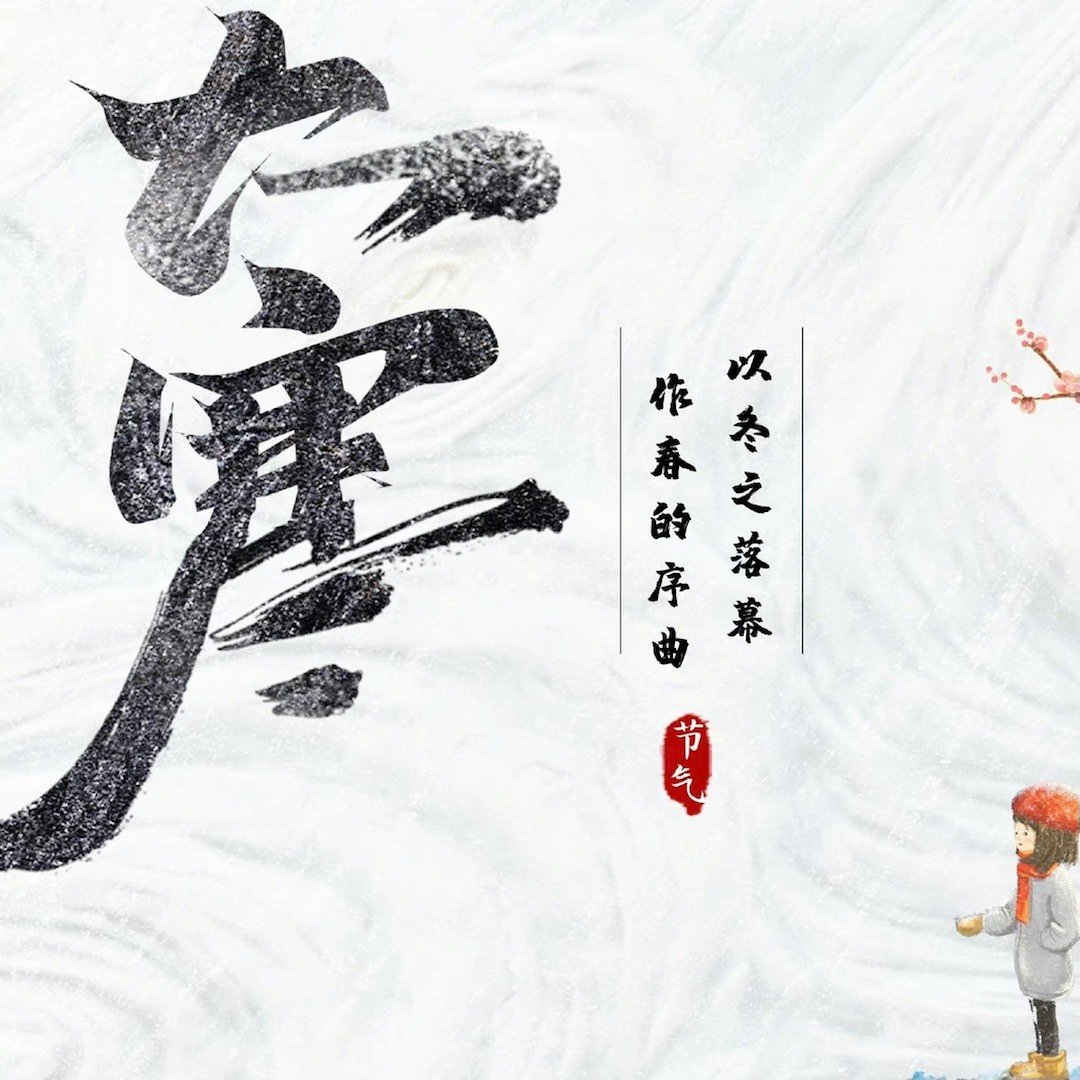 大寒
以冬之落幕
作春的序曲
节气